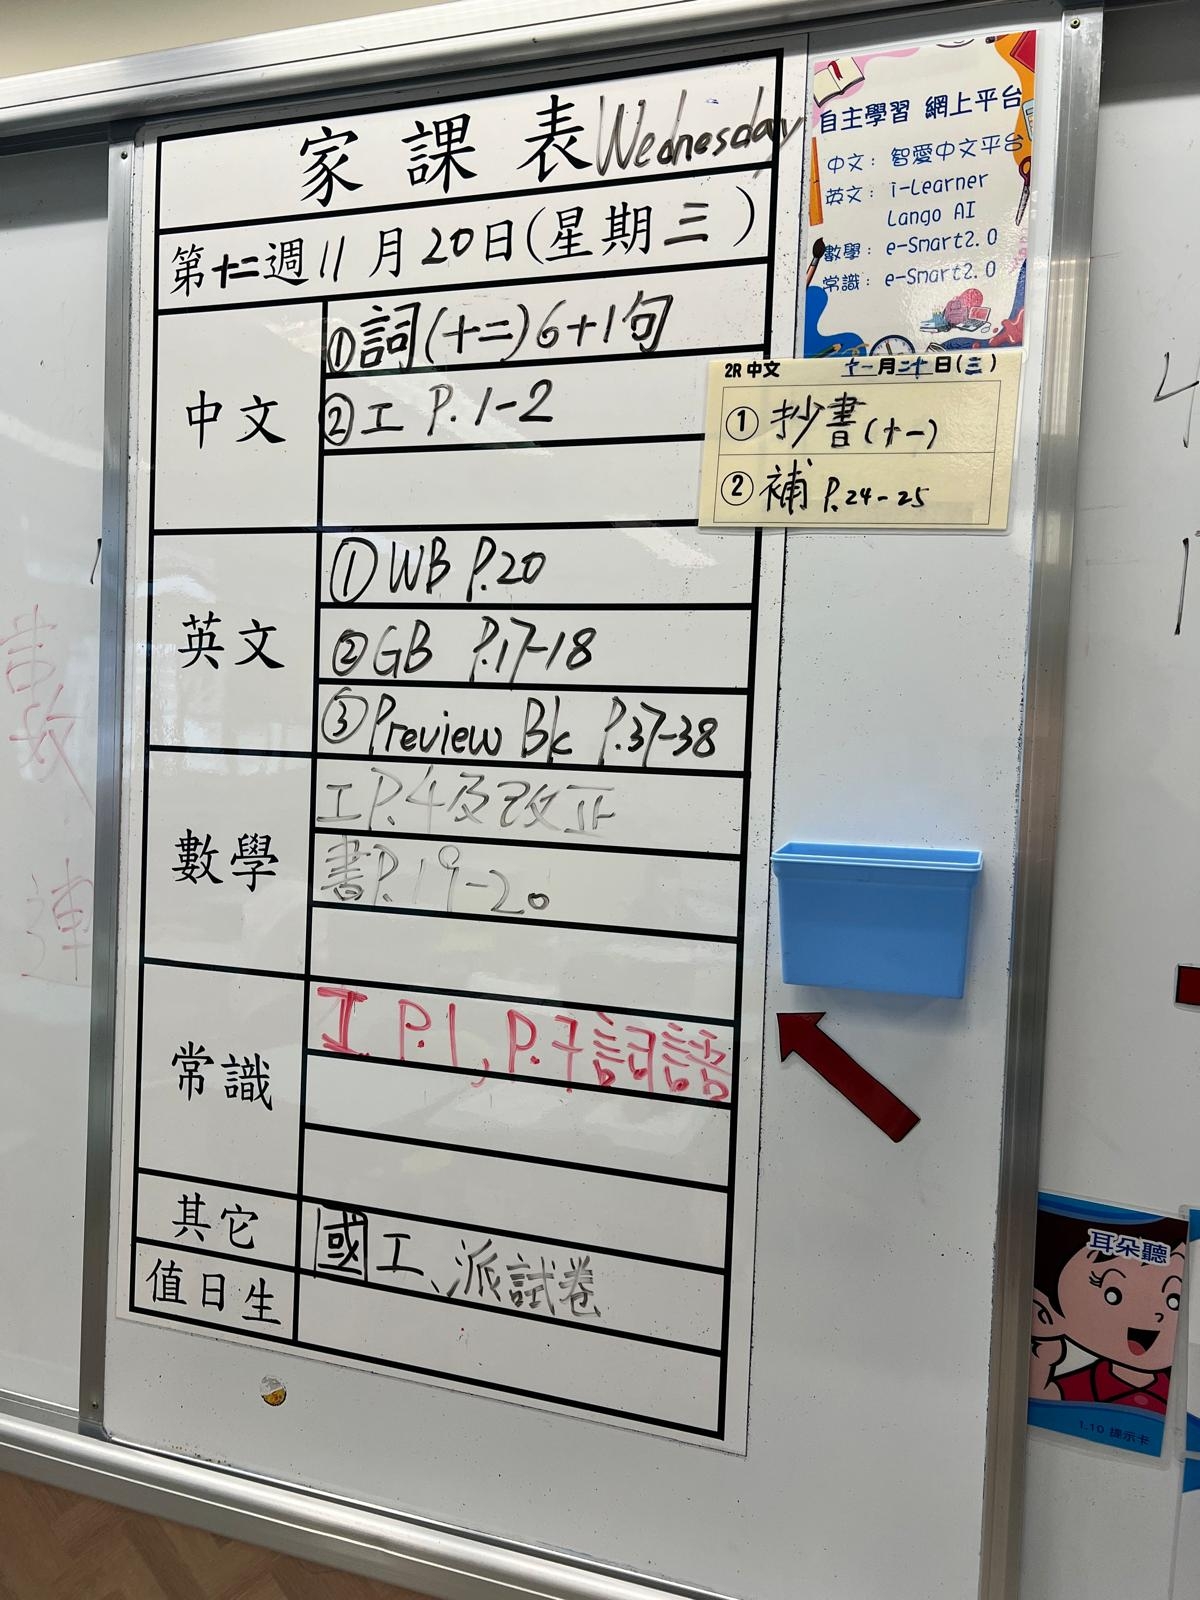 家課表 Wednesday
第十二週 11月20日(星期三)
中文
①詞(十二)6+1句
②工 P.1-2
英文
①WB P.20
②GB P.17-18
③Preview Bk P.37-38
數學
工P.4及改正
書P.19-20
常識
工 P.1, P.7詞語
其它
國工、派試卷
值日生
自主學習 網上平台
中文: 智愛中文平台
英文: i-Learner
Lango AI
數學: e-Smart2.0
常識: e-Smart2.0
2R 中文 十一月二十日(三)
① 抄書(十一)
② 補 P.24-25
耳朵聽
1.10 提示卡
連